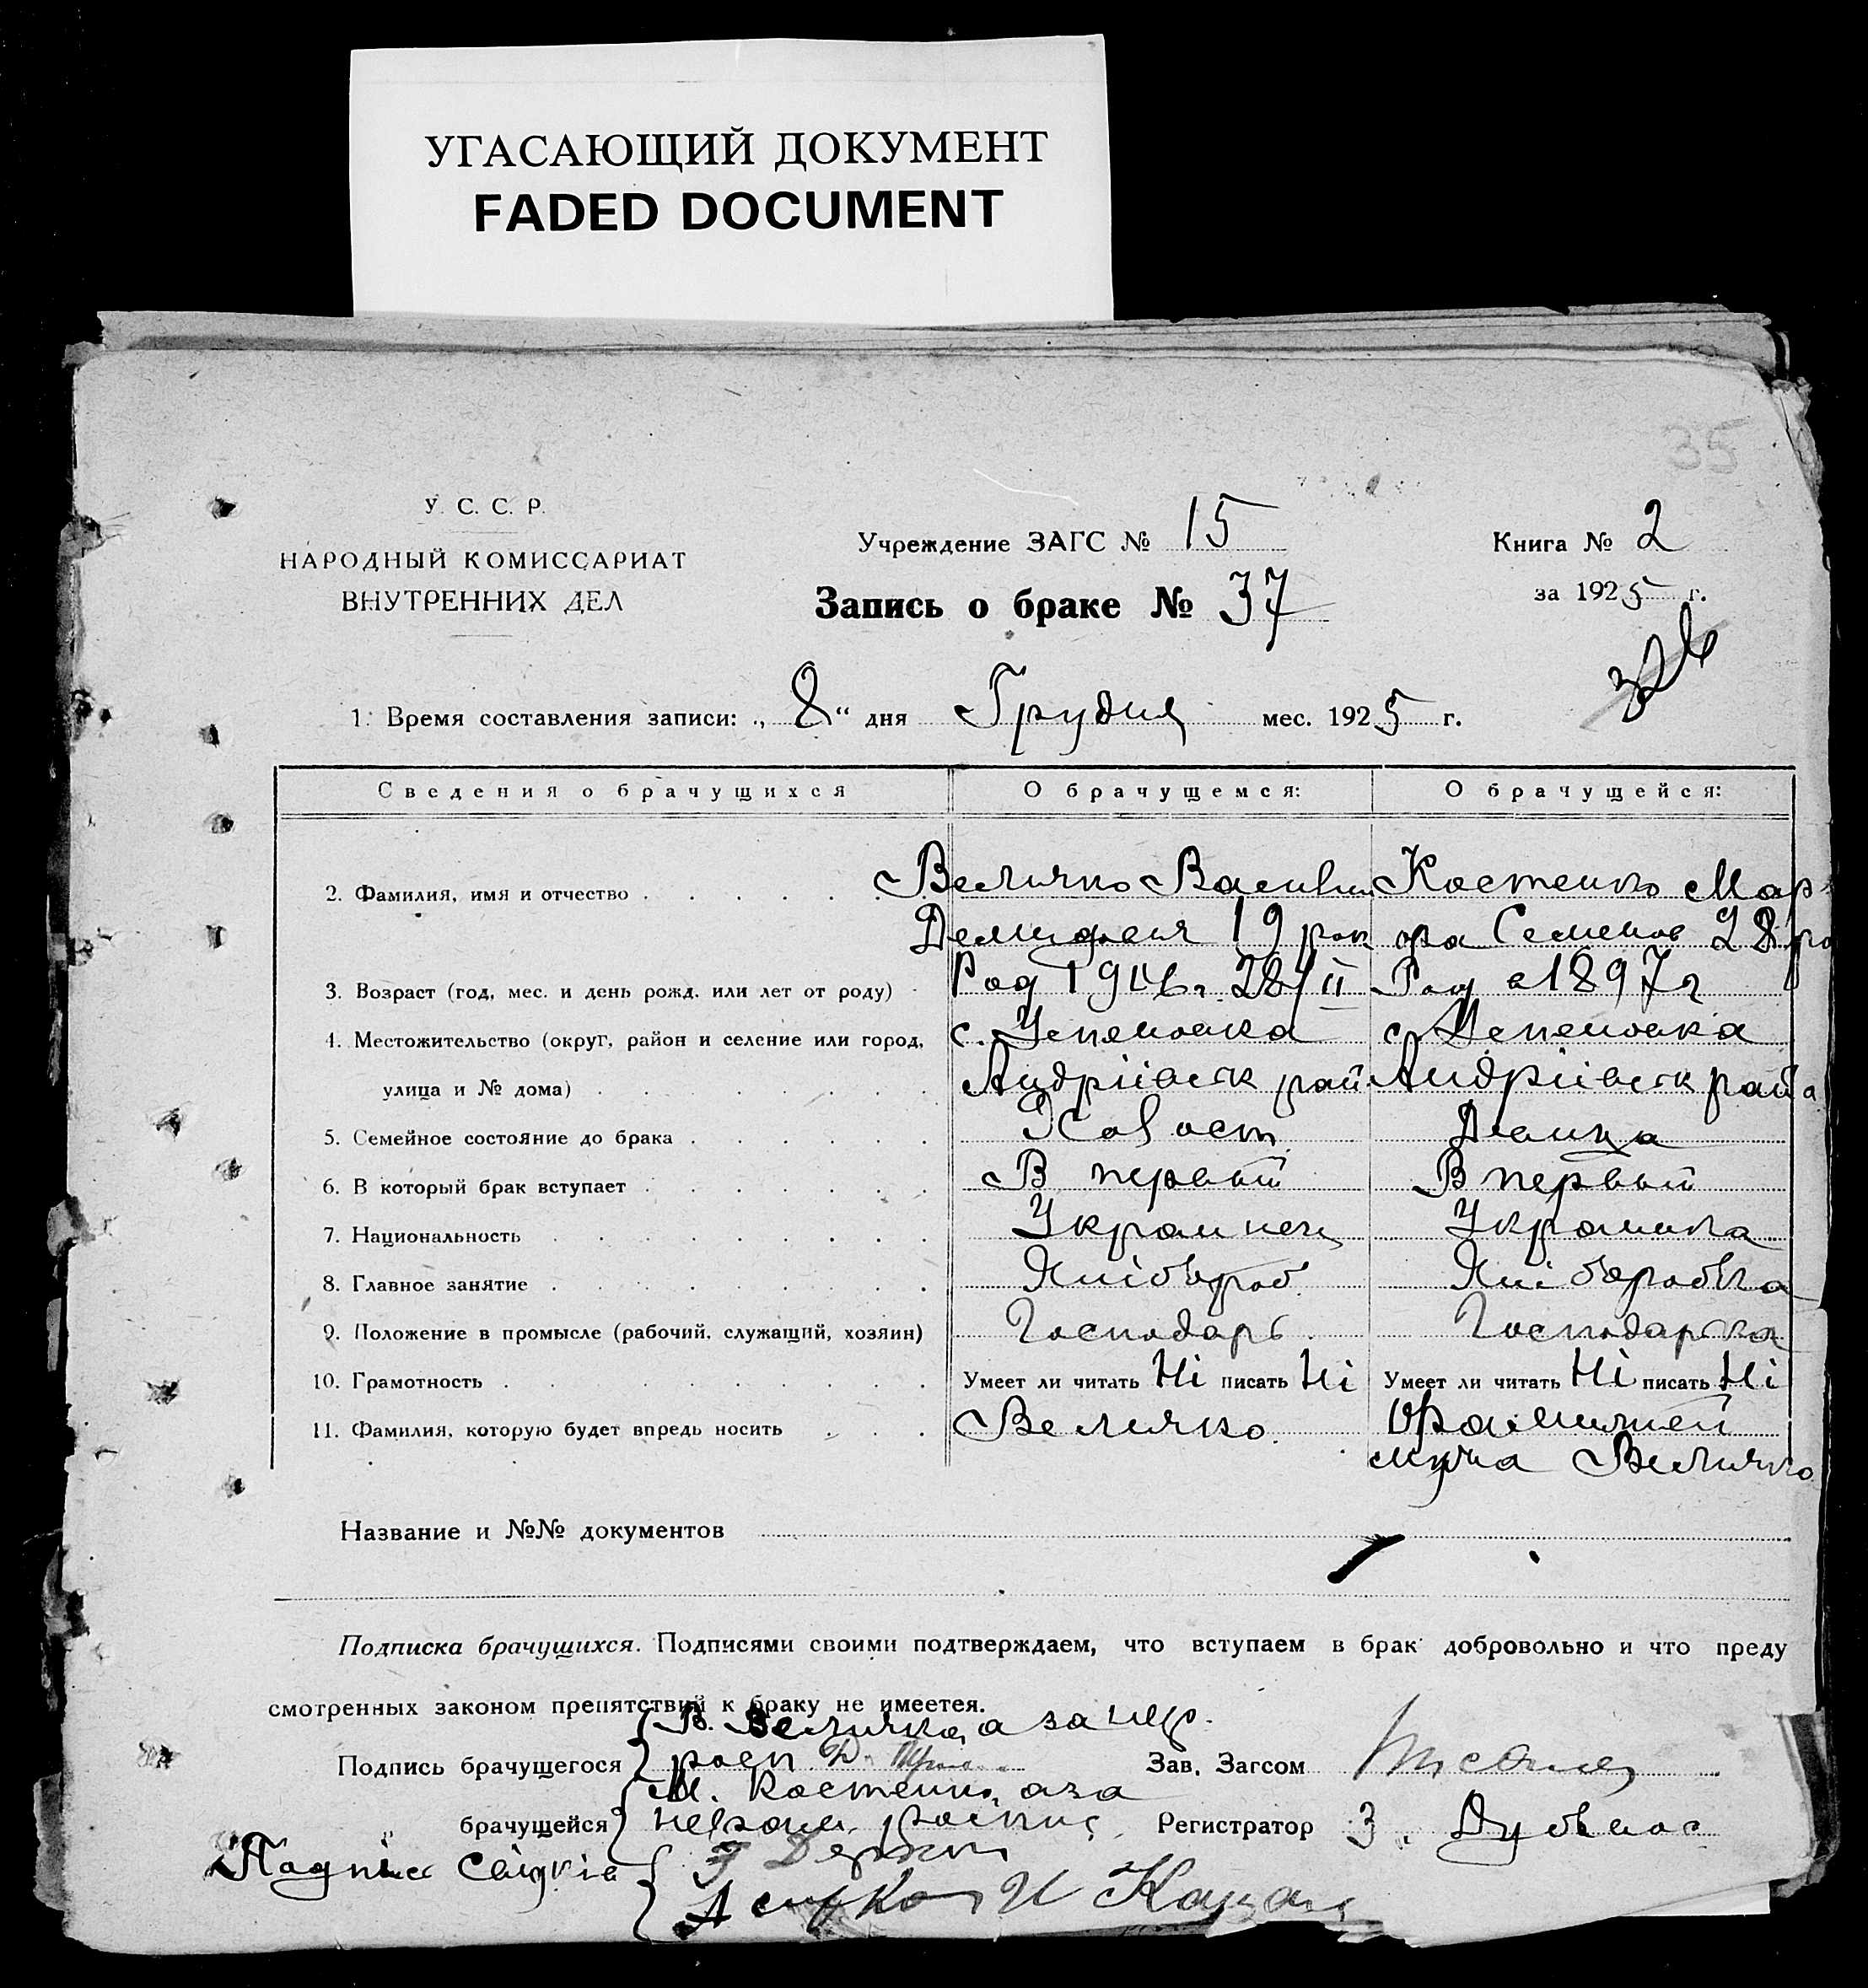 УГАСАЮЩИЙ ДОКУМЕНТ
FADED DOCUMENT
35
У. С. С. Р.
НАРОДНЫЙ КОМИССАРИАТ
ВНУТРЕННИХ ДЕЛ
Учреждение ЗАГС № 15
Книга № 2
Запись о браке № 37
за 1925 г.
1. Время составления записи: „8“ дня Грудня мес. 1925 г.
Сведения о брачущихся О брачущемся: О брачущейся:
2. Фамилия, имя и отчество Величко Костенко Мар
19 рок 28 ро
3. Возраст (год, мес. и день рожд. или лет от роду) Род 28/II Род 1897 г
4. Местожительство (округ, район и селение или город, с. Успеновка с. Успеновка
улица и № дома) Андріівськ рай Андріівськ рай
5. Семейное состояние до брака
6. В который брак вступает В первый В первый
7. Национальность Украинец Украинка
8. Главное занятие Хліборób Хліборобка
9. Положение в промысле (рабочий, служащий, хозяин) Господарь Господарька
10. Грамотность Умеет ли читать Ні писать Ні Умеет ли читать Ні писать Ні
11. Фамилия, которую будет впредь носить Величко. Фамилией
мужа Величко
Название и №№ документов
Подписка брачущихся. Подписями своими подтверждаем, что вступаем в брак добровольно и что преду
смотренных законом препятствий к браку не имеется.
В. Величко, а за нер.
Подпись брачущегося Зав. Загсом
М. Костенко, аза
брачущейся Регистратор З.
Подпис свідків